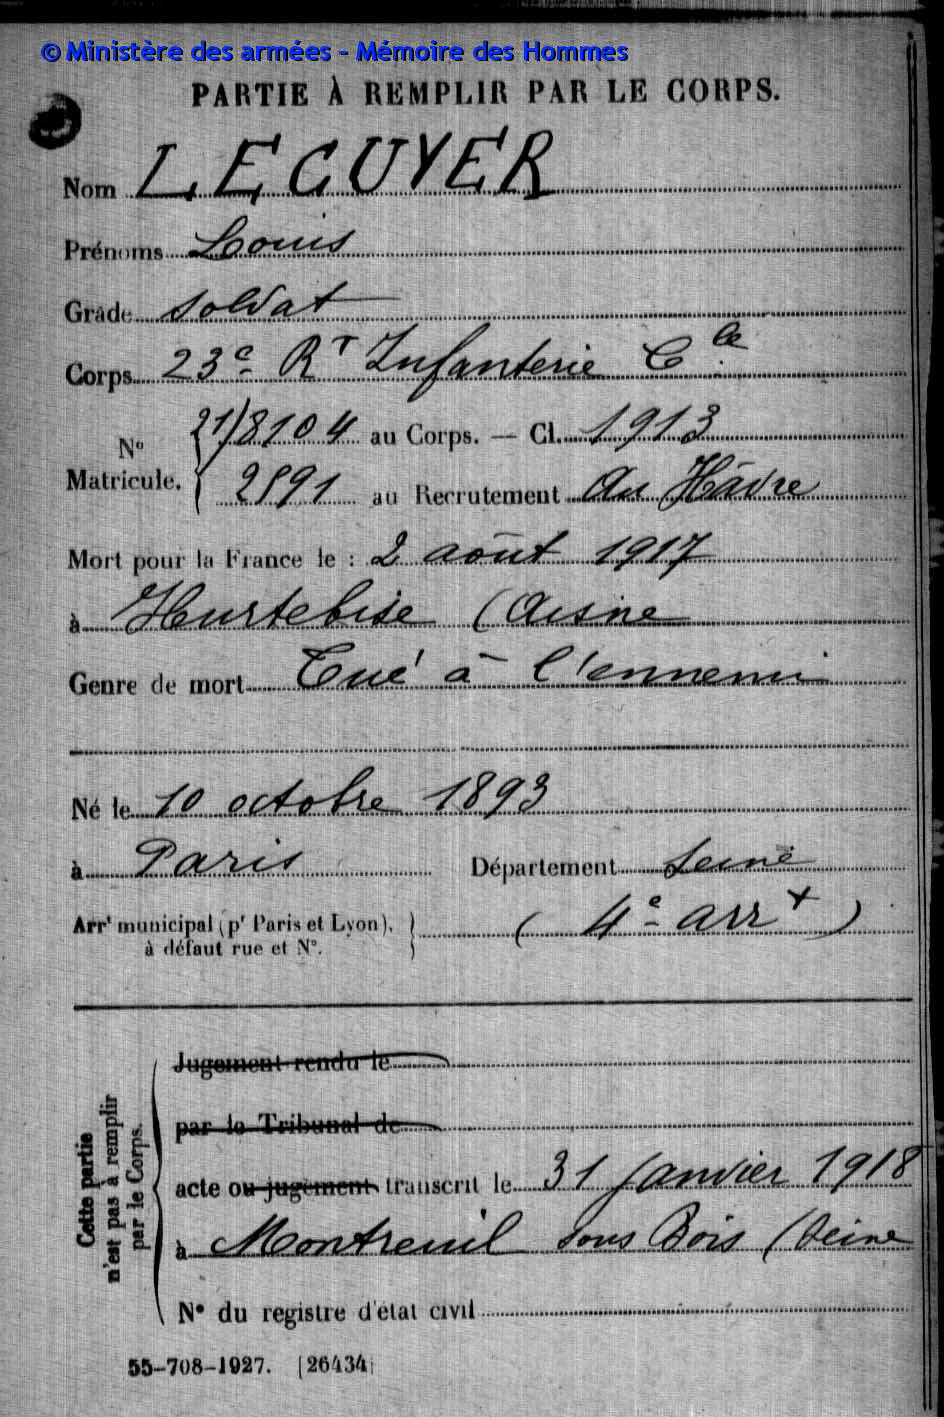 © Ministère des armées - Mémoire des Hommes
PARTIE À REMPLIR PAR LE CORPS.
Nom LECUYER
Prénoms Louis
Grade soldat
Corps 23e Rt Infanterie Cle
N° Matricule. { 21/8104 au Corps. — Cl. 1913
2891 au Recrutement Au Hâvre
Mort pour la France le : 2 août 1917
à Hurtebise (Aisne
Genre de mort Tué à l'ennemi
Né le 10 octobre 1893
à Paris Département Seine
Arrt municipal (pr Paris et Lyon), à défaut rue et N°. } ( 4e arrt )
Cette partie n'est pas à remplir par le Corps.
Jugement rendu le
par le Tribunal de
acte ou jugement transcrit le 31 janvier 1918
à Montreuil sous Bois (Seine
N° du registre d'état civil
55-708-1927. [26434]